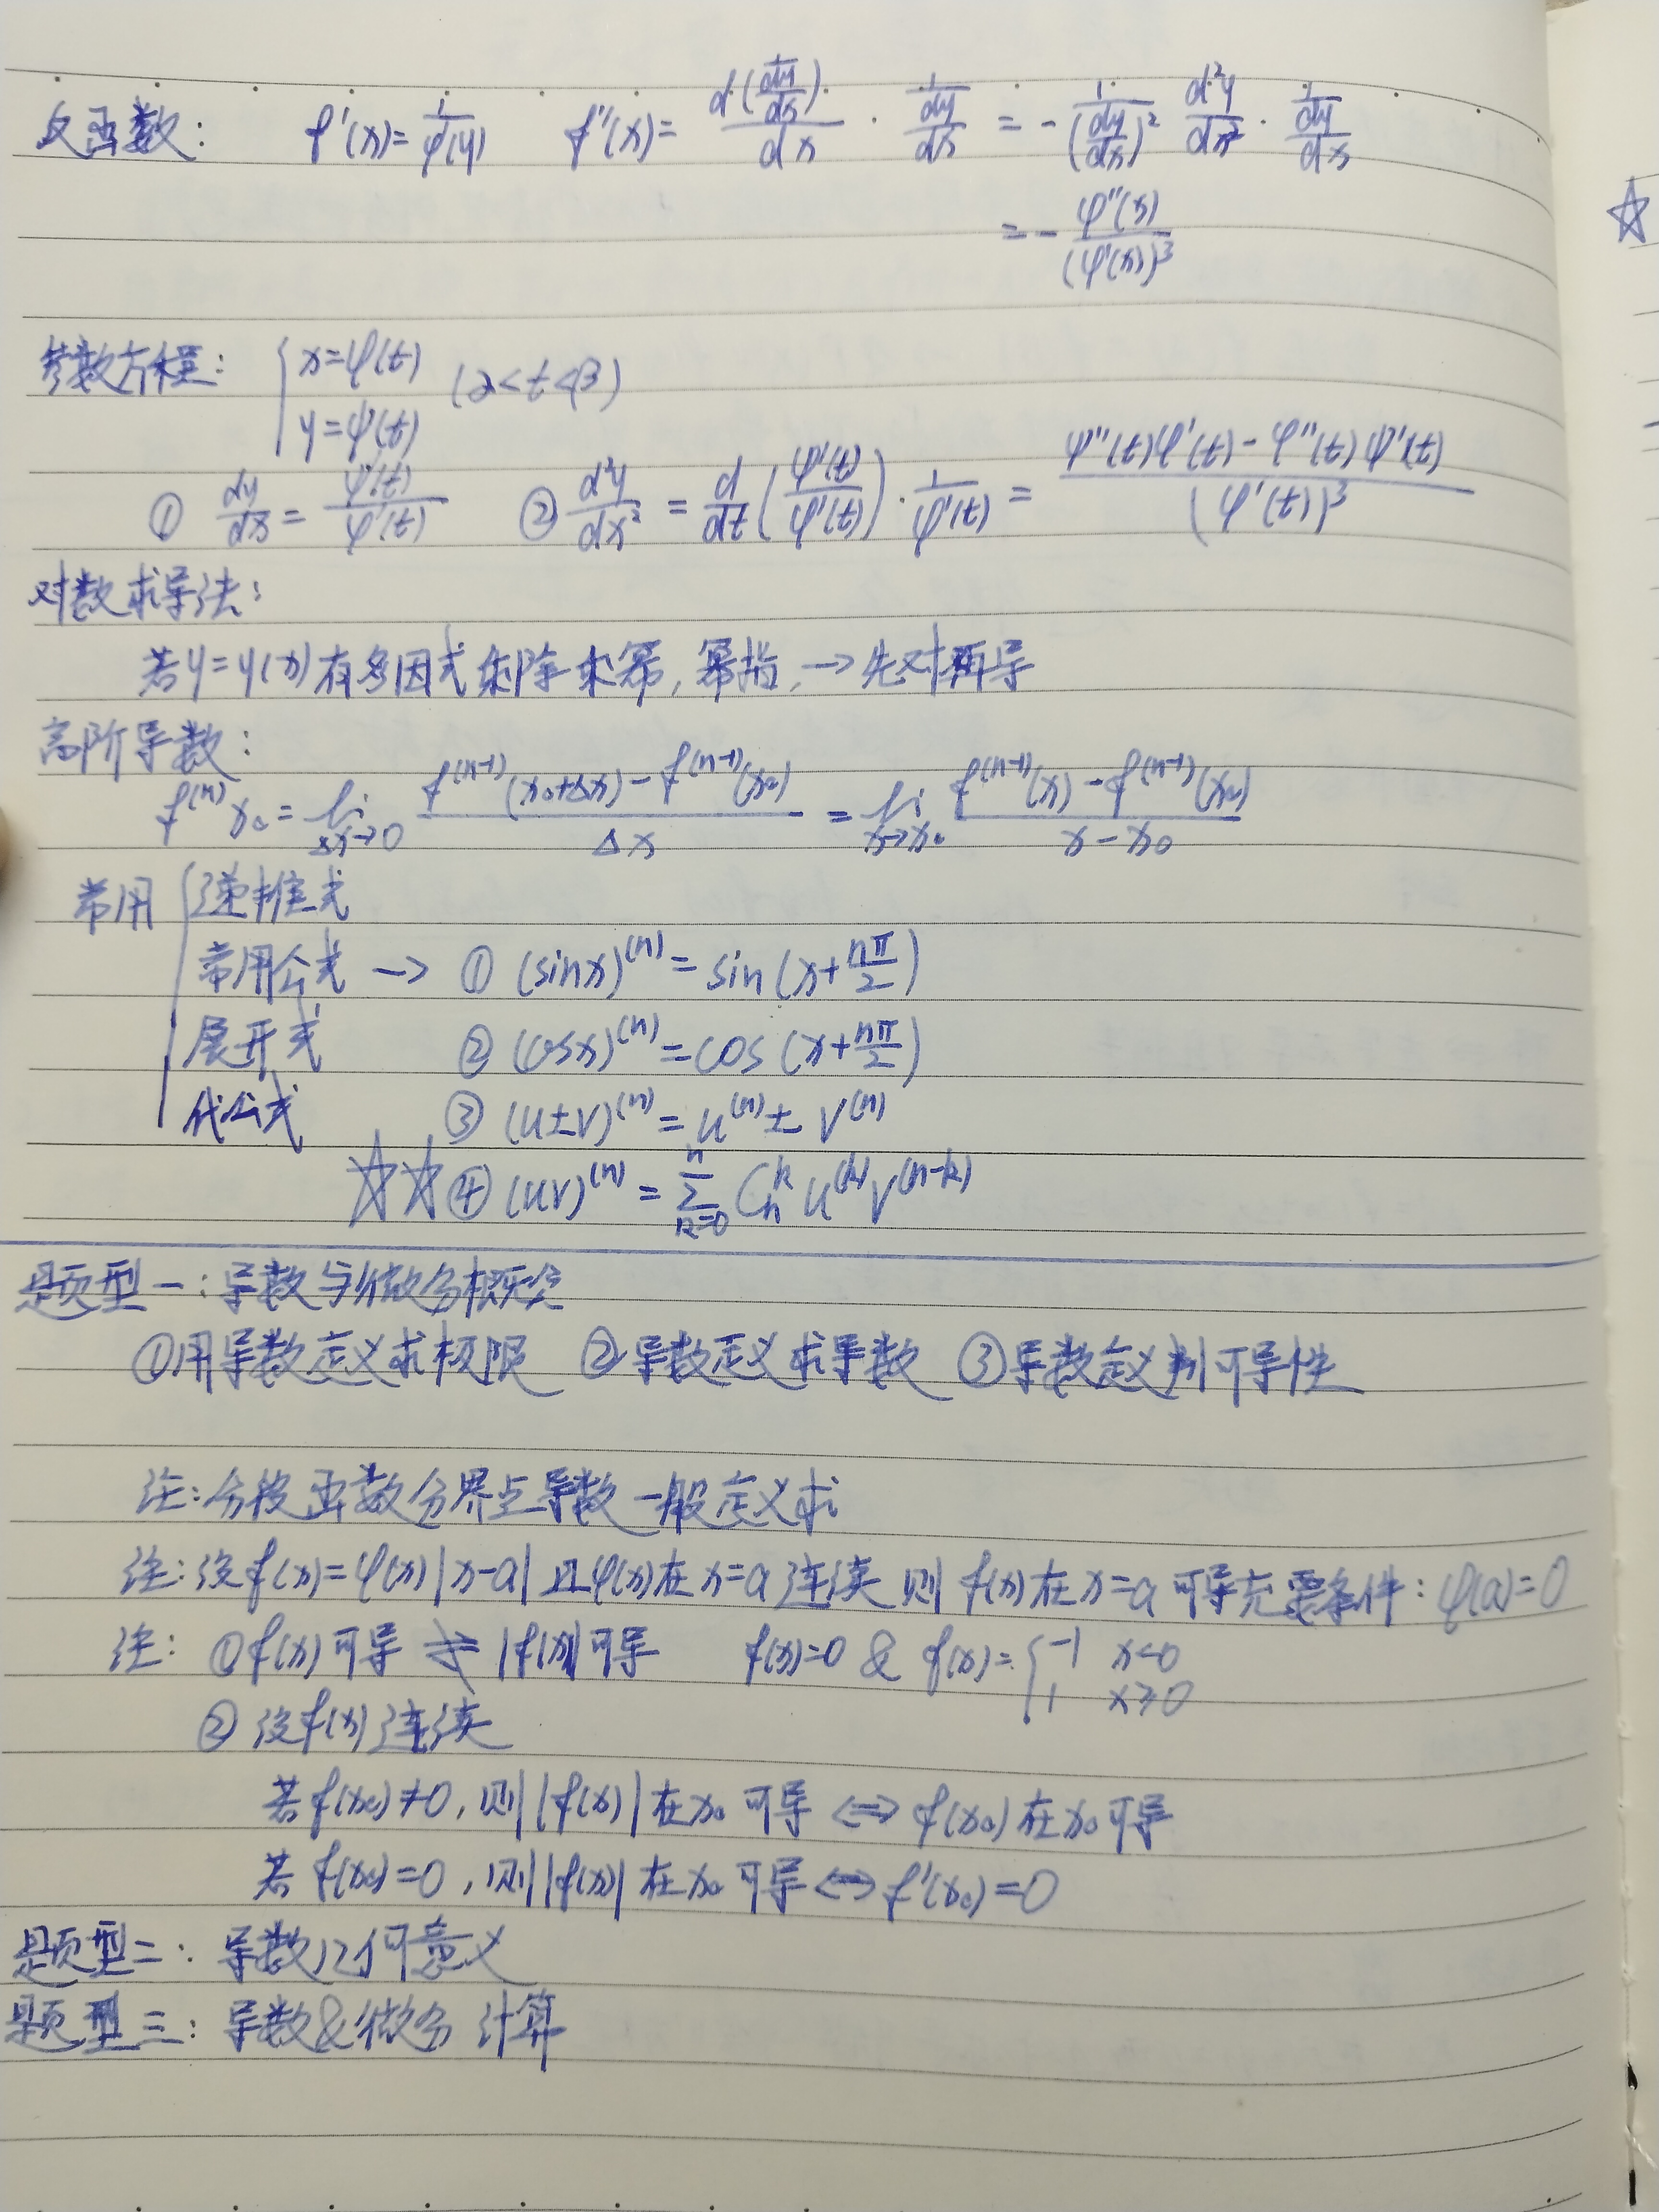 反函数: f'(x)=1/φ'(y) f''(x)= d(1/(dy/dx))/dx · 1/(dy/dx) = -1/(dy/dx)² d²y/dx² · 1/(dy/dx)
= - φ''(x)/(φ'(x))³
参数方程: { x=φ(t) y=ψ(t) (α<t<β)
① dy/dx = ψ'(t)/φ'(t) ② d²y/dx² = d/dt (ψ'(t)/φ'(t)) · 1/φ'(t) = ψ''(t)φ'(t)-φ''(t)ψ'(t)/(φ'(t))³
对数求导法:
若y=y(x)有多因式乘除乘幂,幂指,→先对再导
高阶导数:
f⁽ⁿ⁾x₀ = lim Δx→0 f⁽ⁿ⁻¹⁾(x₀+Δx)-f⁽ⁿ⁻¹⁾(x₀)/Δx = lim x→x₀ f⁽ⁿ⁻¹⁾(x)-f⁽ⁿ⁻¹⁾(x₀)/x-x₀
常用 { 递推式
常用公式 → ① (sinx)⁽ⁿ⁾=sin(x+nπ/2)
展开式 ② (cosx)⁽ⁿ⁾=cos(x+nπ/2)
代公式 ③ (u±v)⁽ⁿ⁾=u⁽ⁿ⁾±v⁽ⁿ⁾
☆☆④ (uv)⁽ⁿ⁾ = Σ n k=0 Cₙᵏ u⁽ᵏ⁾v⁽ⁿ⁻ᵏ⁾
题型一: 导数与微分概念
①用导数定义求极限 ②导数定义求导数 ③导数定义判可导性
注:分段函数分界点导数一般定义求
注:设f(x)=φ(x)|x-a|且φ(x)在x=a连续则f(x)在x=a可导充要条件:φ(a)=0
注: ①f(x)可导⇌|f(x)|可导 f(x)=0 & f(x)={ -1 x<0
1 x≥0
② 设f(x)连续
若f(x₀)≠0,则|f(x)|在x₀可导⇔f(x₀)在x₀可导
若f(x₀)=0,则|f(x)|在x₀可导⇔f'(x₀)=0
题型二: 导数几何意义
题型三: 导数&微分 计算
☆